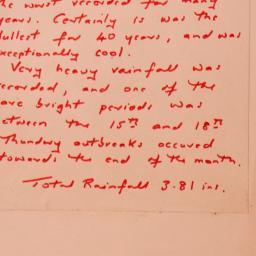 the worst recorded for many
years. Certainly is was the
dullest for 40 years, and was
exceptionally cool.
Very heavy rainfall was
recorded, and one of the
rare bright periods was
between the 15th and 18th
Thundery outbreaks occured
towards the end of the month.
Total Rainfall 3.81 ins.